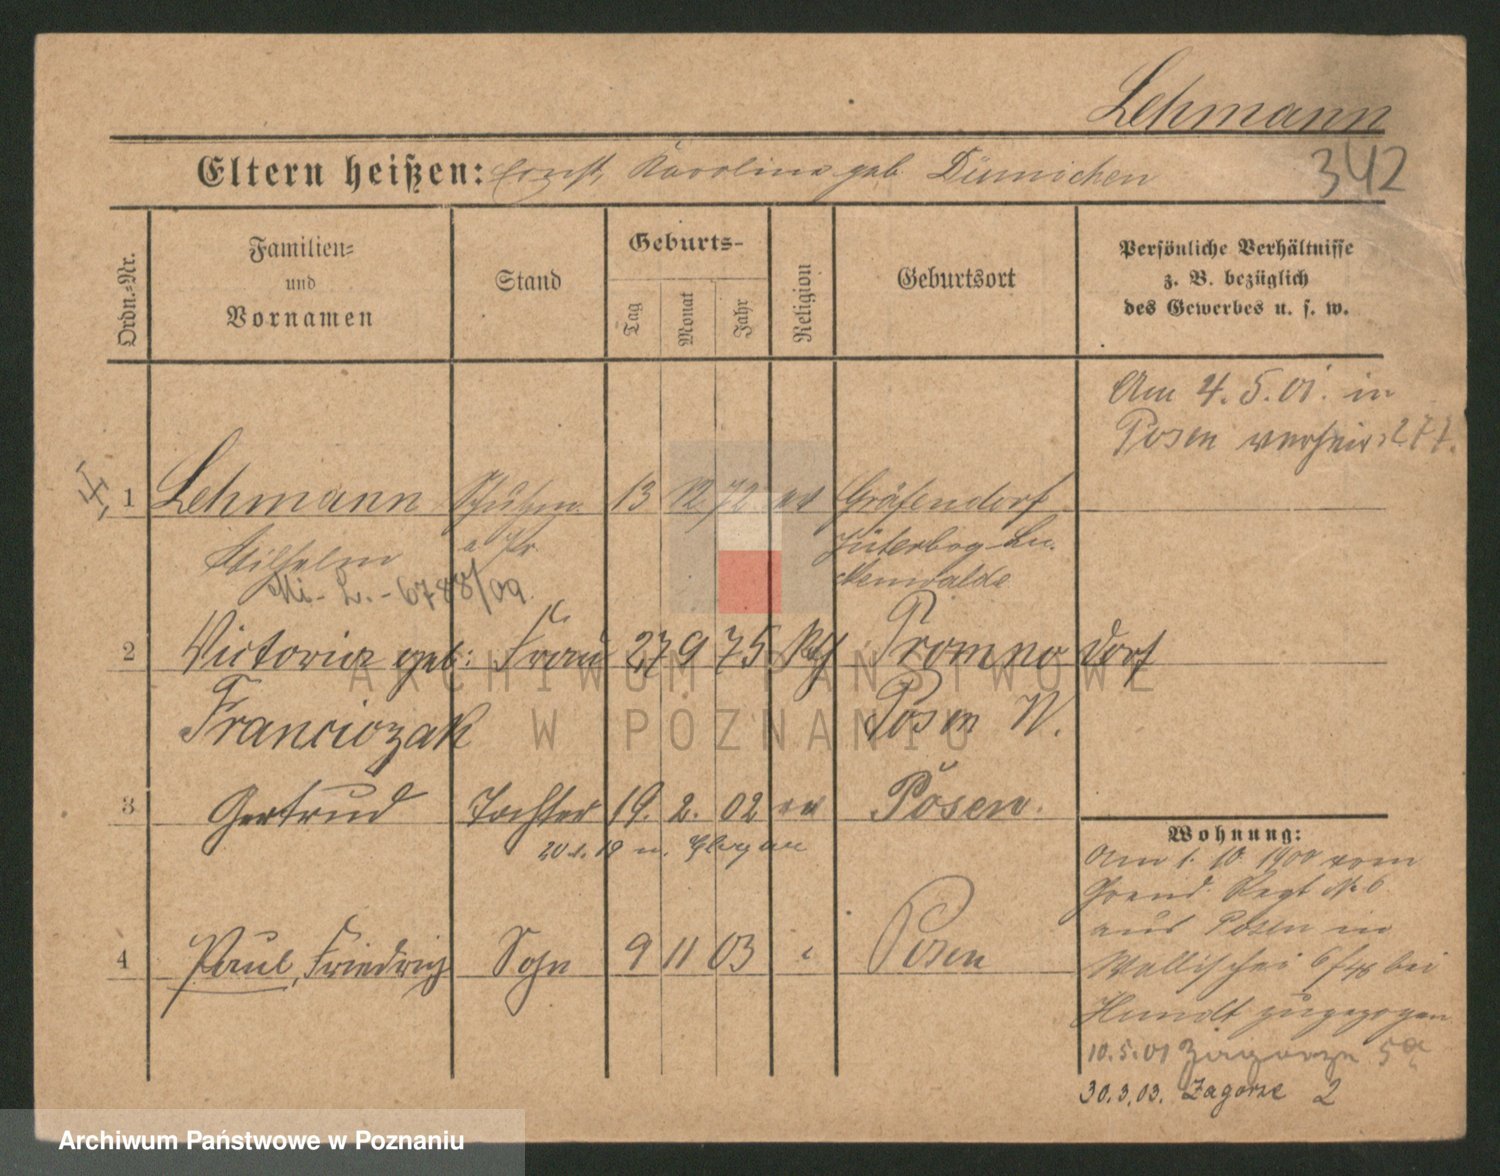 Lehmann
Eltern heißen: Ernst, Karolina geb. Dümichen
342
Ordn.-Nr.
Familien-
und
Vornamen
Stand
Geburts-
Tag
Monat
Jahr
Religion
Geburtsort
Persönliche Verhältnisse
z. B. bezüglich
des Gewerbes u. s. w.
Am 4.5.01. in
Posen verheir. 277.
1 Lehmann Schutzm. 13 12 72 ev Gräfendorf
Wilhelm
Jüterbog-Lu-
ckenwalde
Mi-L.-6788/09.
2 Victoria geb: Frau 27 9 75 kth Promno Dorf
Franciczak Posen W.
3 Gertrud Tochter 19. 2. 02 ev Posen.
n. Glogau
4 Paul, Friedrich Sohn 9 11 03 Posen
Wohnung:
Am 1. 10. 1900 vom
Grend. Regt No 6
aus Posen in
Wallischei 6/48 bei
Hundt zugezogen
10.5.01 Zagorze
30.3.03. Zagorze 2
ARCHIWUM PAŃSTWOWE
W POZNANIU
Archiwum Państwowe w Poznaniu